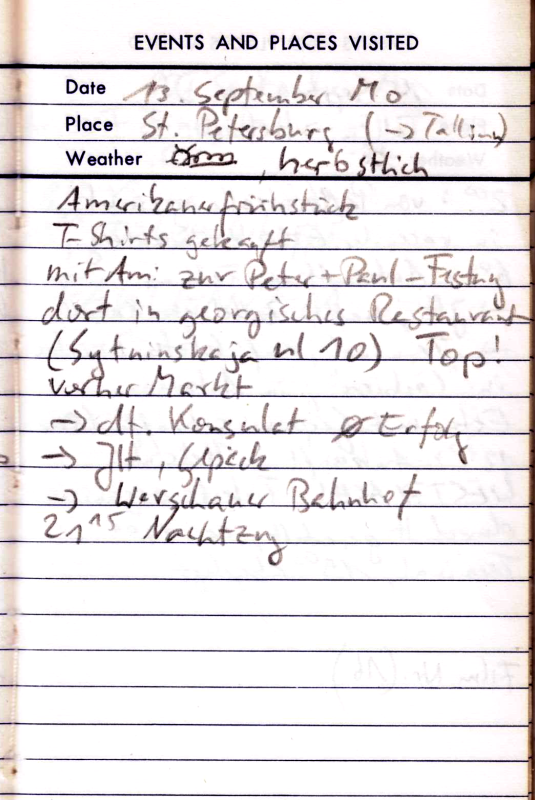 EVENTS AND PLACES VISITED
Date 13. September Mo
Place St. Petersburg (→ Tallinn)
Weather , herbstlich
Amerikanerfrühstück
T-Shirts gekauft
mit Ami zur Peter + Paul - Festung
dort in georgisches Restaurant
(Sytninskaja ul 10) Top!
vorher Markt
→ dt. Konsulat Ø Erfolg
→ JH, Gepäck
→ Warschauer Bahnhof
21 15 Nachtzug